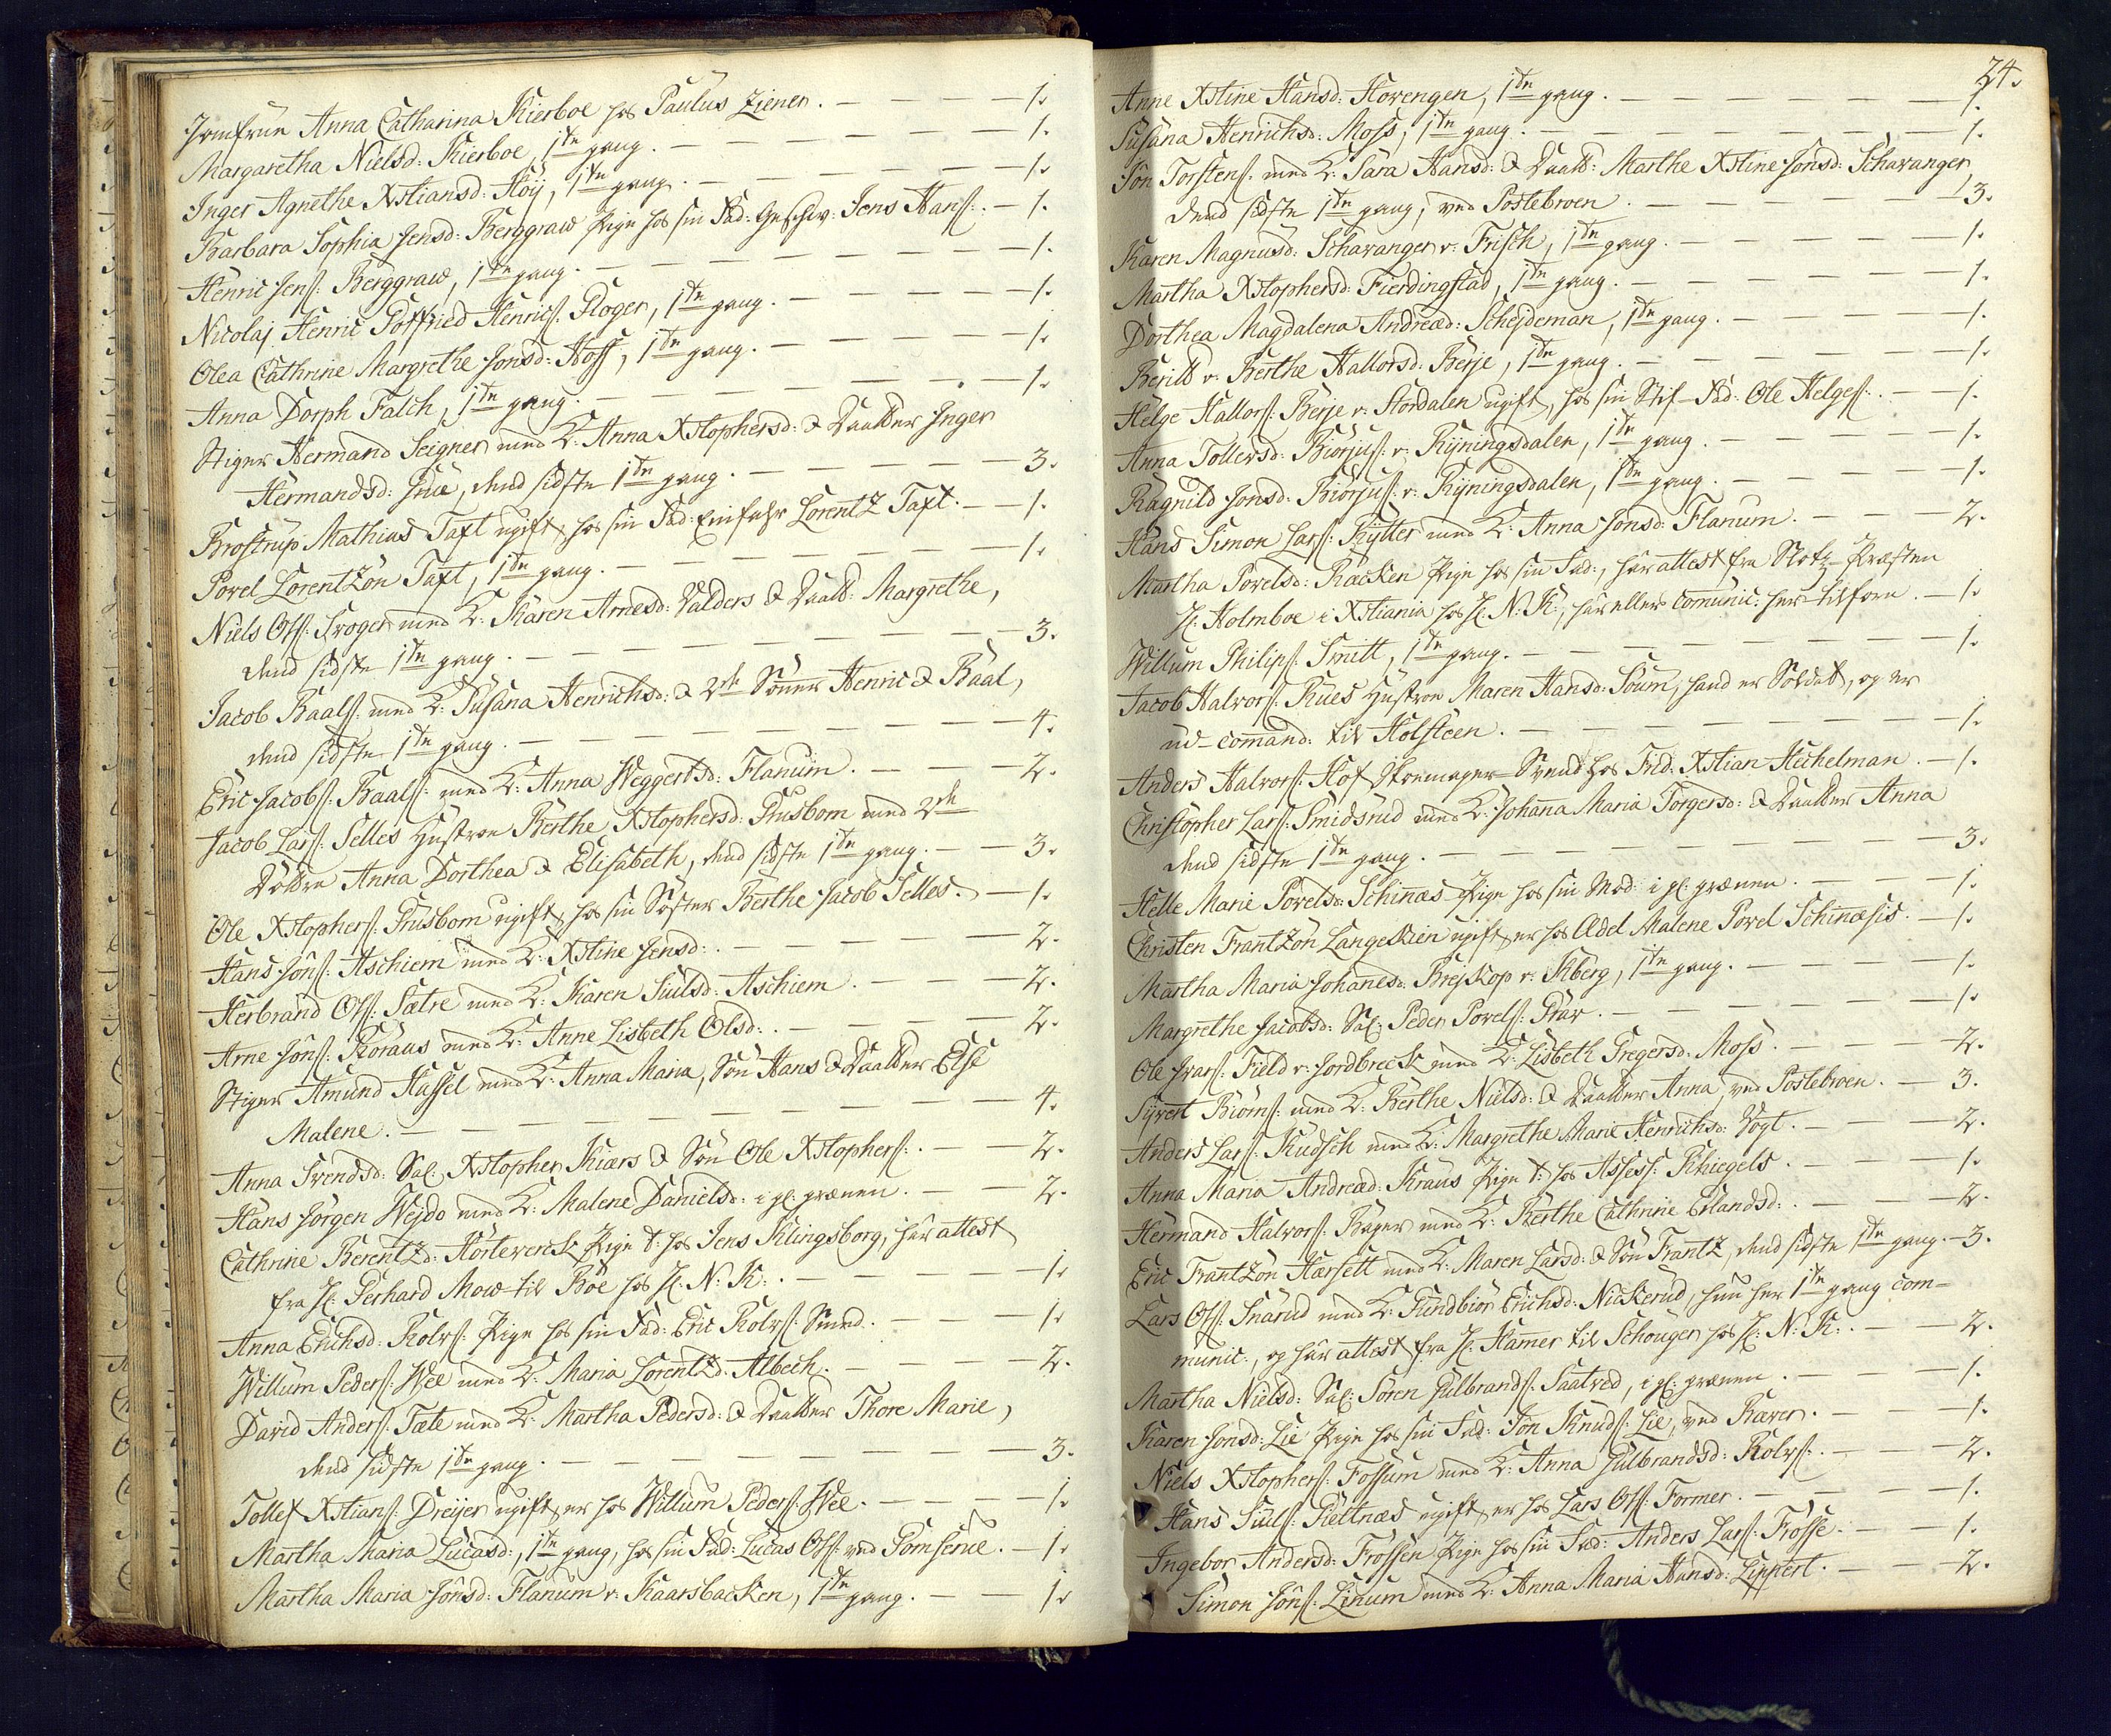 Jomfrue Anna Catharina Kierboe hos Paulus Ziener. — — — — 1.
Margaretha Nielsd: Kierboe, 1ste gang. — — — — — — 1.
Inger Agnethe Xstiansd: Höy, 1ste gang. — — — — — 1.
Barbara Sophia Jensd: Berggraw Pige hos sin Fad: Geschw: Jens Hans: — 1.
Henric Jens: Berggraw, 1ste gang. — — — — — — 1.
Nicolaj Henric Gottfried Henrics: Ploger, 1ste gang. — — — — 1.
Olea Cathrine Margrethe Jonsd: Hoff, 1ste gang. — — — — 1.
Anna Dorph Falch, 1ste gang. — — — — — — 1.
Stiger Hermand Seigner med K: Anna Xstophersd: & Daatter Inger
Hermandsd: Grüe, dend sidste 1ste gang. — — — — — 3.
Brostrup Mathias Taxt ugift, hos sin Fad: Einfahr Lorentz Taxt. — — 1.
Povel Lorentzön Taxt, 1ste gang. — — — — — — 1.
Niels Ols: Svoger med K: Karen Arnesd: Valders & Daatt: Margrethe,
dend sidste 1ste gang. — — — — — — 3.
Jacob Baals: med K: Susana Henrichsd: & 2de Sönner Henric & Baal,
dend sidste 1ste gang. — — — — — — 4.
Eric Jacobs: Baals: med K: Anna Weggertsd: Flanum. — — — 2.
Jacob Lars: Selles Hustroe Berthe Xstophersd: Prusbom med 2de
Döttre Anna Dorthea & Elisabeth, dend sidste 1ste gang. — — 3.
Ole Xstophers: Prusbom ugift, hos sin Söster Berthe Jacob Selles. — 1.
Hans Jöns: Aschiem med K: Xstine Jensd: — — — — — 2.
Herbrand Ols: Sætre med K: Karen Siulsd: Aschiem. — — — — 2.
Arne Jöns: Koraus med K: Anne Lisbeth Olsd: — — — — 2.
Stiger Amund Hassel med K: Anna Maria, Sön Hans & Daatter Else
Malene. — — — — — — — — 4.
Anna Svendsd: Sal: Xstopher Kiærs & Sön Ole Xstophers: — — — 2.
Hans Jörgen Wejdo med K: Malene Danielsd: i gl: grænen. — — 2.
Cathrine Berentzd: Hortewerck Pige t: hos Jens Klingsborg, har attest
fra H: Gerhard Mow til Böe hos H: N: K: — — — — — 1.
Anna Erichsd: Rolvs: Pige hos sin Fad: Eric Rolvs: Smed. — — — 1.
Willum Peders: Wee med K: Maria Lorentzd: Albech. — — — 2.
David Anders: Tæte med K: Martha Pedersd: & Daatter Thore Marie,
dend sidste 1ste gang. — — — — — — 3.
Tollef Xstians: Dreijer ugift, er hos Willum Peders: Wee. — — — — 1.
Martha Maria Lucasd:, 1ste gang, hos sin Fad: Lucas Ols: ved Gomserue. — 1.
Martha Maria Jönsd: Flanum v: Kaarsbacken, 1ste gang. — — 1.
24.
Anne Xstine Hansd: Hovengen, 1ste gang. — — — — — 1.
Susana Henrichsd: Moss, 1ste gang. — — — — — — 1.
Jön Torstens: med K: Sara Hansd: & Daatt: Marthe Xstine Jonsd: Schavanger,
dend sidste 1ste gang, ved Postebroen. — — — — — 3.
Karen Magnusd: Schavanger v: Frisch, 1ste gang. — — — — 1.
Martha Xstophersd: Fierdingstad, 1ste gang. — — — — 1.
Dorthea Magdalena Andread: Schejdeman, 1ste gang. — — — — 1.
Beritt v: Berthe Hallorsd: Berje, 1ste gang. — — — — — 1.
Helge Hallors: Berje v: Stordalen ugift, hos sin Stif-Fad: Ole Helges: — 1.
Anna Tollevsd: Biörjus: v: Ryningsdalen, 1ste gang. — — — — 1.
Ragnild Jonsd: Biörjus: v: Ryningsdalen, 1ste gang. — — — 1.
Hans Simon Lars: Rytter med K: Anna Jonsd: Flanum. — — — 2.
Martha Povelsd: Racken Pige hos sin Fad:, har attest fra Slotz-Præsten
H: Holmboe i Xstiania hos H: N: K:, har ellers comunic: her tilforn. — 1.
Willum Philips: Smitt, 1ste gang. — — — — — 1.
Jacob Halvors: Rues Hustroe Maren Hansd: Soum, hand er Soldat, og er
ud-comand: til Holsteen. — — — — — — — 1.
Anders Halvors: Hof Skomager-Svend hos Frid: Xstian Heckelman. — 1.
Christopher Lars: Smidsrud med K: Johana Maria Torgersd: & Daatter Anna
dend sidste 1ste gang. — — — — — — — 3.
Helle Marie Povelsd: Schinæs Pige hos sin Mod: i gl: grænen. — — — 1.
Christen Frantzön Langeskien ugift, er hos Ædel Malene Povel Schinæsis. — 1.
Martha Maria Johanesd: Brejskop v: Kberg, 1ste gang. — — — — 1.
Margrethe Jacobsd: Sal: Peder Povels: Prav. — — — — — 1.
Ole Ivars: Field v: Jordbreck med K: Lisbeth Gregersd: Moss. — — — 2.
Syvert Biörns: med K: Berthe Nielsd: & Daatter Anna, ved Postebroen. — 3.
Anders Lars: Kudsch med K: Margrethe Marie Henrichsd: Vogt. — — 2.
Anna Maria Andread: Kraus Pige t: hos Assess: Khiegels. — — — 1.
Hermand Halvors: Bager med K: Berthe Cathrine Erlandsd: — — — 2.
Eric Frantzön Hærsett med K: Maren Larsd: & Sön Frantz, dend sidste 1ste gang. — 3.
Lars Ols: Snarud med K: Gundbiör Erichsd: Nickerud, hun her 1ste gang com-
munic:, og har attest fra H: Hamer til Schouger hos H: N: K: — — 2.
Martha Nielsd: Sal: Sören Gulbrands: Saatved, i gl: grænen. — — — 1.
Karen Jonsd: Lie Pige hos sin Fad: Jön Knuds: Lie, ved Ræver. — — — 1.
Niels Xstophers: Fossum med K: Anna Gulbrandsd: Rolvs: — — — 2.
Hans Siuls: Giettnæs ugift, er hos Lars Ols: Former. — — — — 1.
Ingebor Andersd: Frossen Pige hos sin Fad: Anders Lars: Frosse. — — 1.
Simon Jöns: Linum med K: Anna Maria Hansd: Lippert. — — — 2.